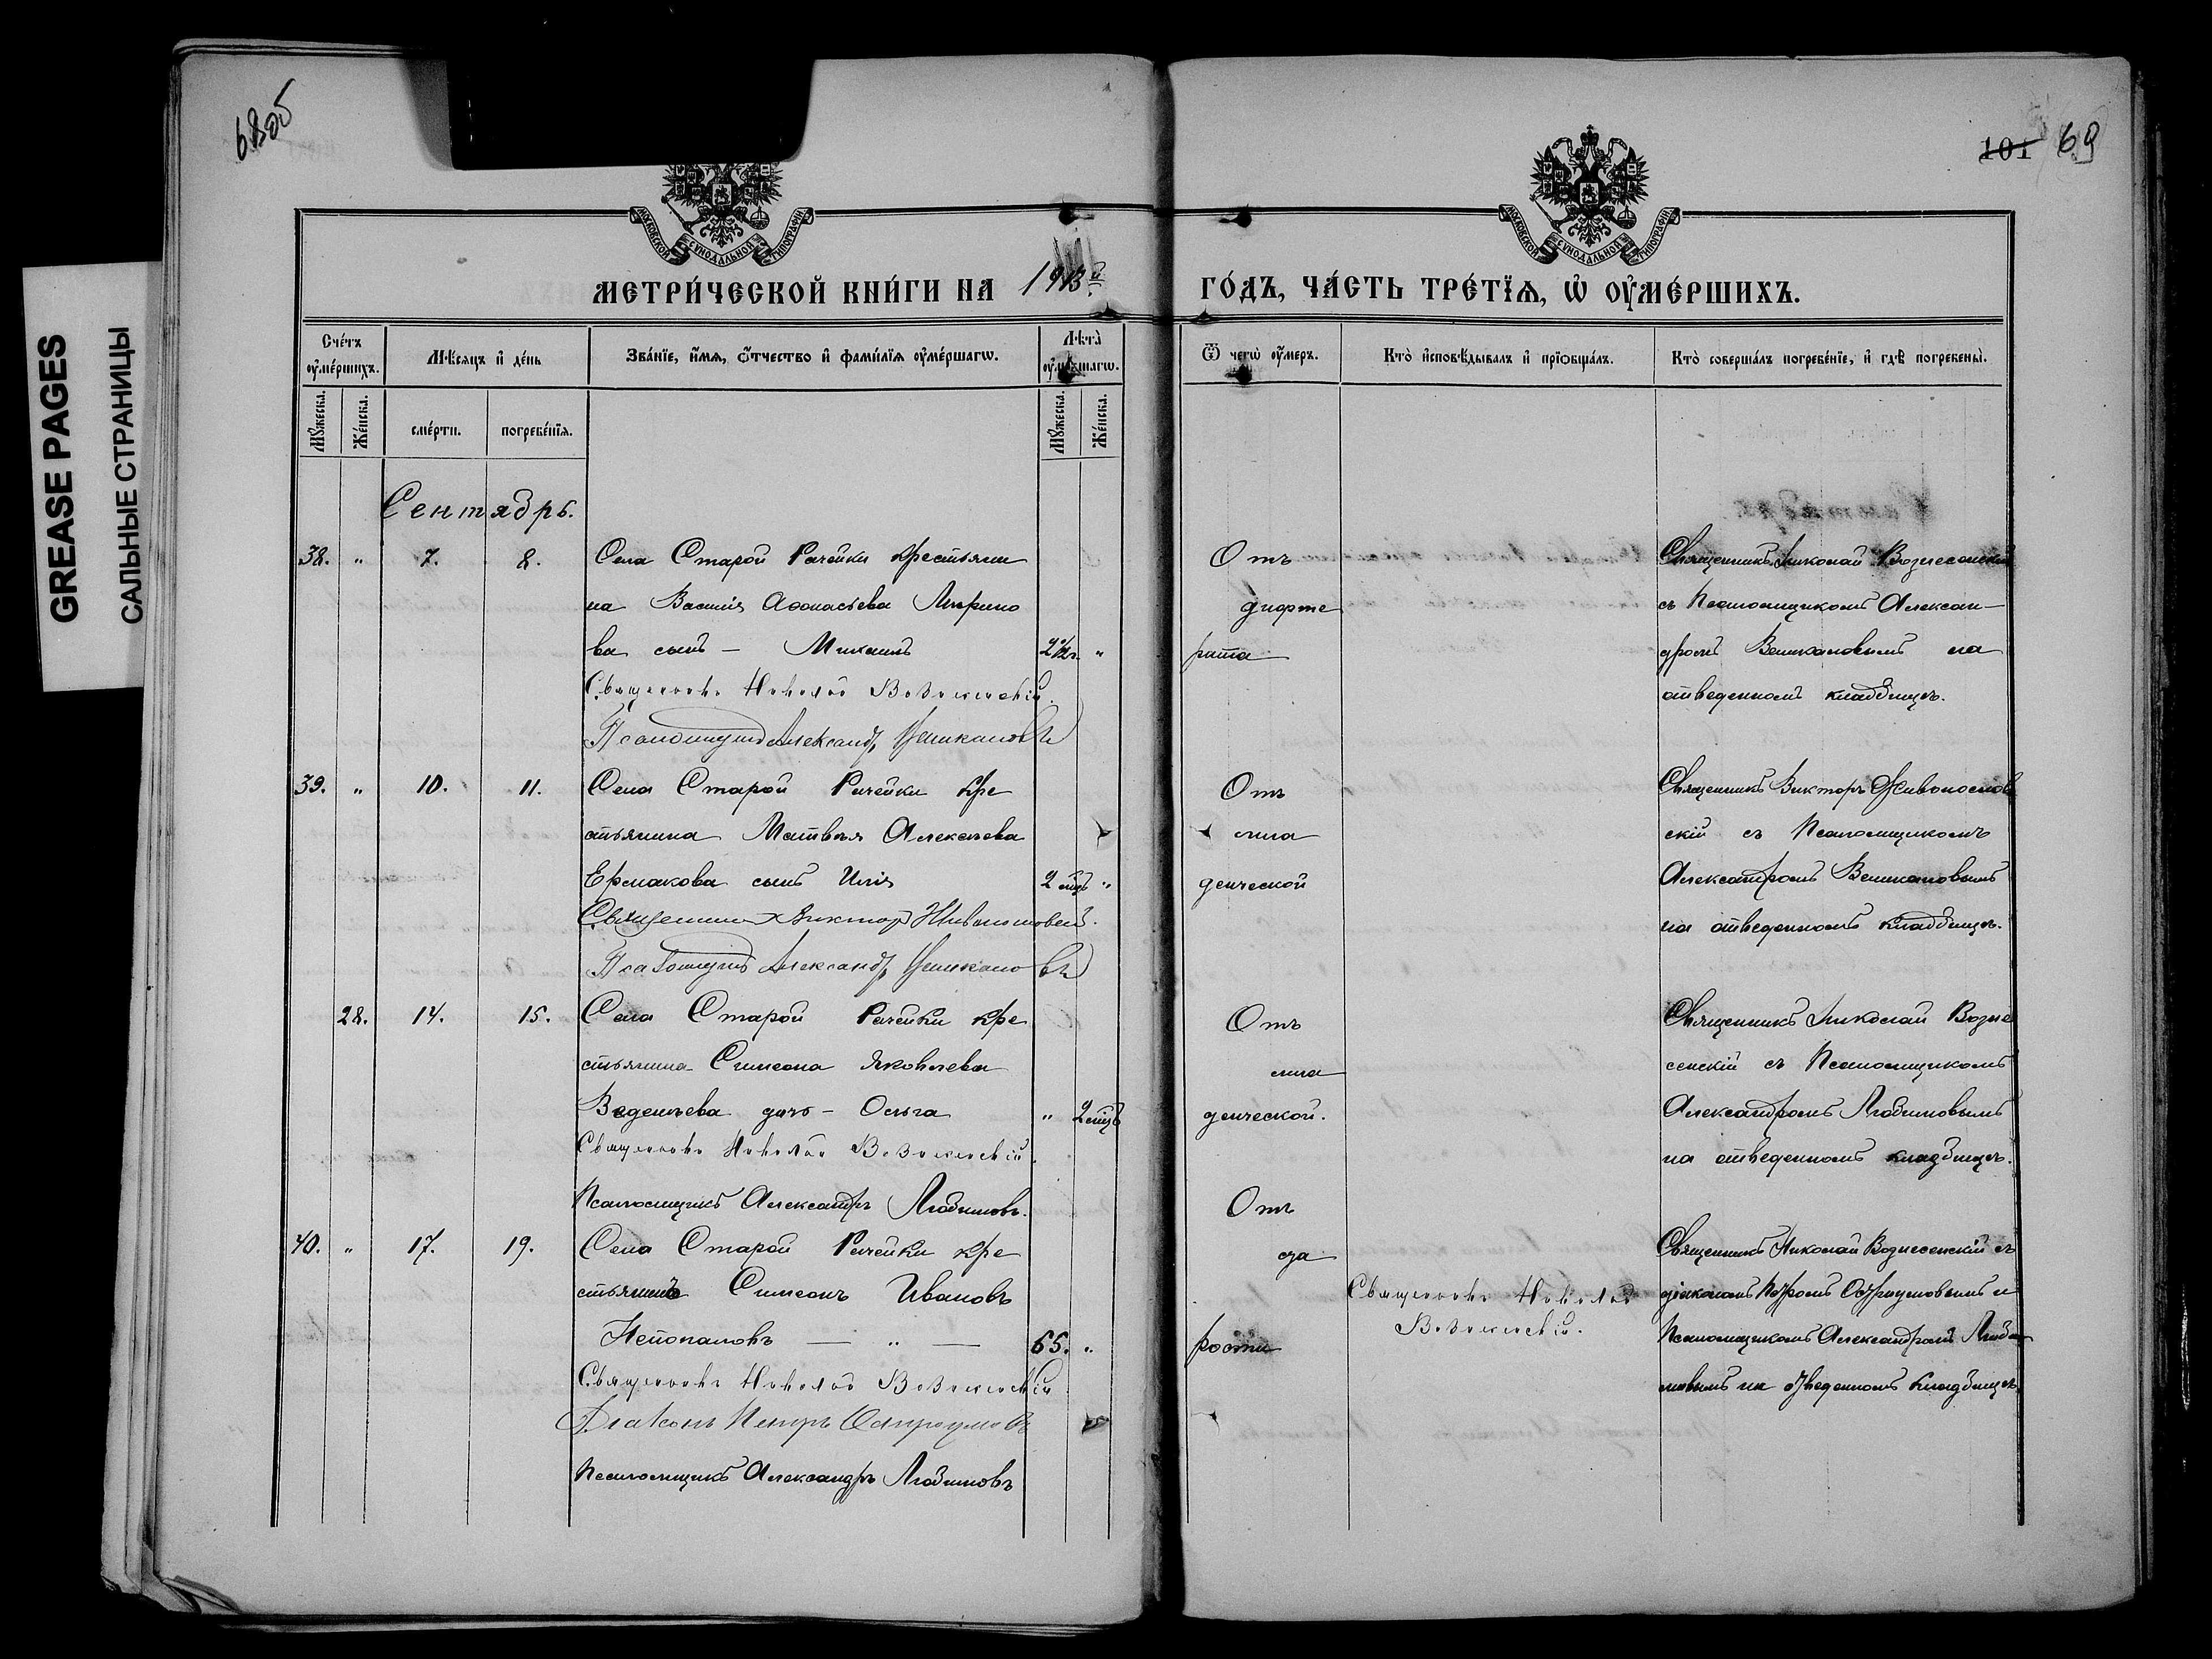 68 об
GREASE PAGES
САЛЬНЫЕ СТРАНИЦЫ
101 69
МОСКОВСКОЙ СѴНОДАЛЬНОЙ ТИПОГРАФІИ
МОСКОВСКОЙ СѴНОДАЛЬНОЙ ТИПОГРАФІИ
МЕТРИ́ЧЕСКОЙ КНИ́ГИ НА 1913й
ГО́ДЪ, ЧА́СТЬ ТРЕ́ТЇѦ, Ѡ҆ ОУ҆МЕ́РШИХЪ.
Сче́тъ оу҆ме́ршихъ.
Мѣ́сяцъ и҆ де́нь
Зва́нїе, и҆́мѧ, ѻ҆́тчество и҆ фамѝлїѧ оу҆ме́ршагѡ.
Лѣ́та оу҆ме́ршагѡ.
Ѿ чегѡ̀ оу҆́меръ.
Кто̀ и҆сповѣ́дывалъ и҆ прїѡбща́лъ.
Кто̀ соверша́лъ погребе́нїе, и҆ гдѣ̀ погребены̀.
Мꙋ́жеска.
Же́нска.
сме́рти.
погребе́нїѧ.
Мꙋ́жеска.
Же́нска.
Сентябрь.
38. " 7. 8. Села Старой Рачейки крестьяни
на Василія Аѳонасьева Мирино
ва сынъ — Михаилъ 2½ г. "
Священникъ Николай Вознесенскій.
Псаломщикъ Александръ Великановъ
Отъ
дифте
рита
Священникъ Николай Вознесенскій
съ Псаломщикомъ Алексан-
дромъ Великановымъ на
отведенномъ кладбищѣ.
39. " 10. 11. Села Старой Рачейки кре
стьянина Матвѣя Алексѣева
Ермакова сынъ Илія 2 мѣц "
Священникъ Викторъ Живоносновскій.
Псаломщикъ Александръ Великановъ
Отъ
мла
денческой
Священникъ Викторъ Живоноснов
скій съ Псаломщикомъ
Александромъ Великановымъ
на отведенномъ кладбищѣ.
28. 14. 15. Села Старой Рачейки кре
стьянина Симеона Яковлева
Веденѣева дочь — Ольга " 2 мѣц
Священникъ Николай Вознесенскій.
Псаломщикъ Александръ Любимовъ.
Отъ
мла
денческой.
Священникъ Николай Возне
сенскій съ Псаломщикомъ
Александромъ Любимовымъ
на отведенномъ кладбищѣ.
40. " 17. 19. Села Старой Рачейки кре
стьянинъ Симеонъ Ивановъ
Непопаловъ — " — 65. "
Священникъ Николай Вознесенскій
Діаконъ Петръ Остроумовъ
Псаломщикъ Александръ Любимовъ
Отъ
ста
рости
Священникъ Николай
Вознесенскій.
Священникъ Николай Вознесенскій съ
діакономъ Петромъ Остроумовымъ и
Псаломщикомъ Александромъ Люби
мовымъ на отведенномъ кладбищѣ.